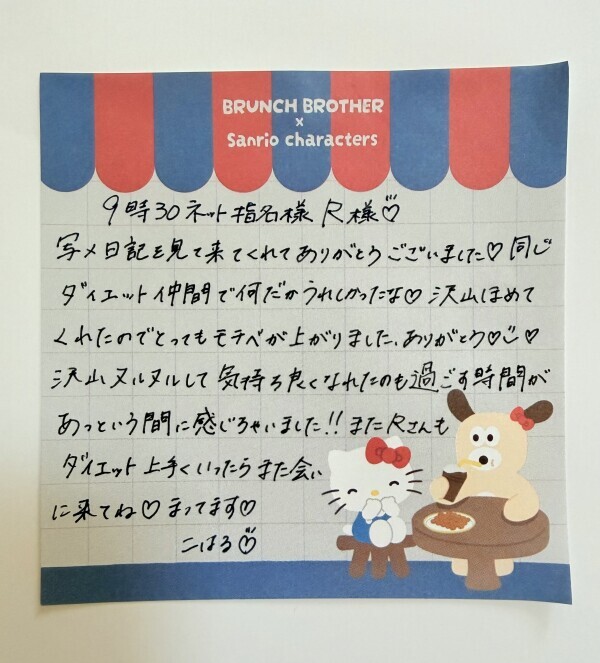 BRUNCH BROTHER
×
Sanrio characters
9時30ネット指名様 R様♡
写メ日記を見て来てくれてありがとうございました♡同じ
ダイエット仲間で何だかうれしかったな♡沢山ほめて
くれたのでとってもモチベが上がりました、ありがとう♡♡
沢山ヌルヌルして気持ち良くなれたのも過ごす時間が
あっという間に感じちゃいました!!またRさんも
ダイエット上手くいったらまた会い
に来てね♡まってます♡
こはる♡